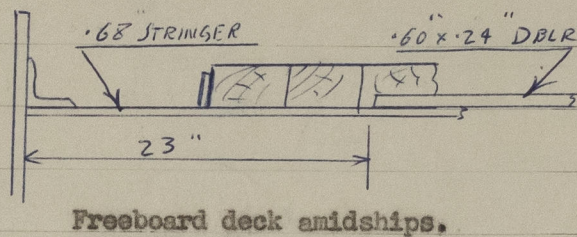 .68" STRINGER
.60" x .24" DBLR
23"
Freeboard deck amidships.